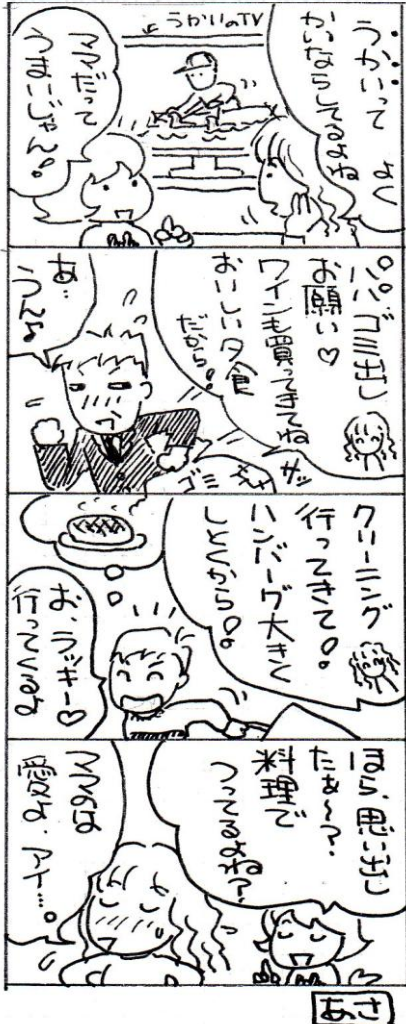 うかいって よく
かいならしてるよね
←うかいのTV
ママだって
うまいじゃん!
パパ、ゴミ出し
お願い♡
ワインも買ってきてね
おいしい夕食
だから!
サッ
ゴミ
あ…
うん♪
クリーニング
行ってきて!
ハンバーグ大きく
しとくから!
お、ラッキー♡
行ってくるよ
ほら、思い出し
たぁ〜?
料理で
つってるよね?
ママのは
愛よ、アイ…。
あさ